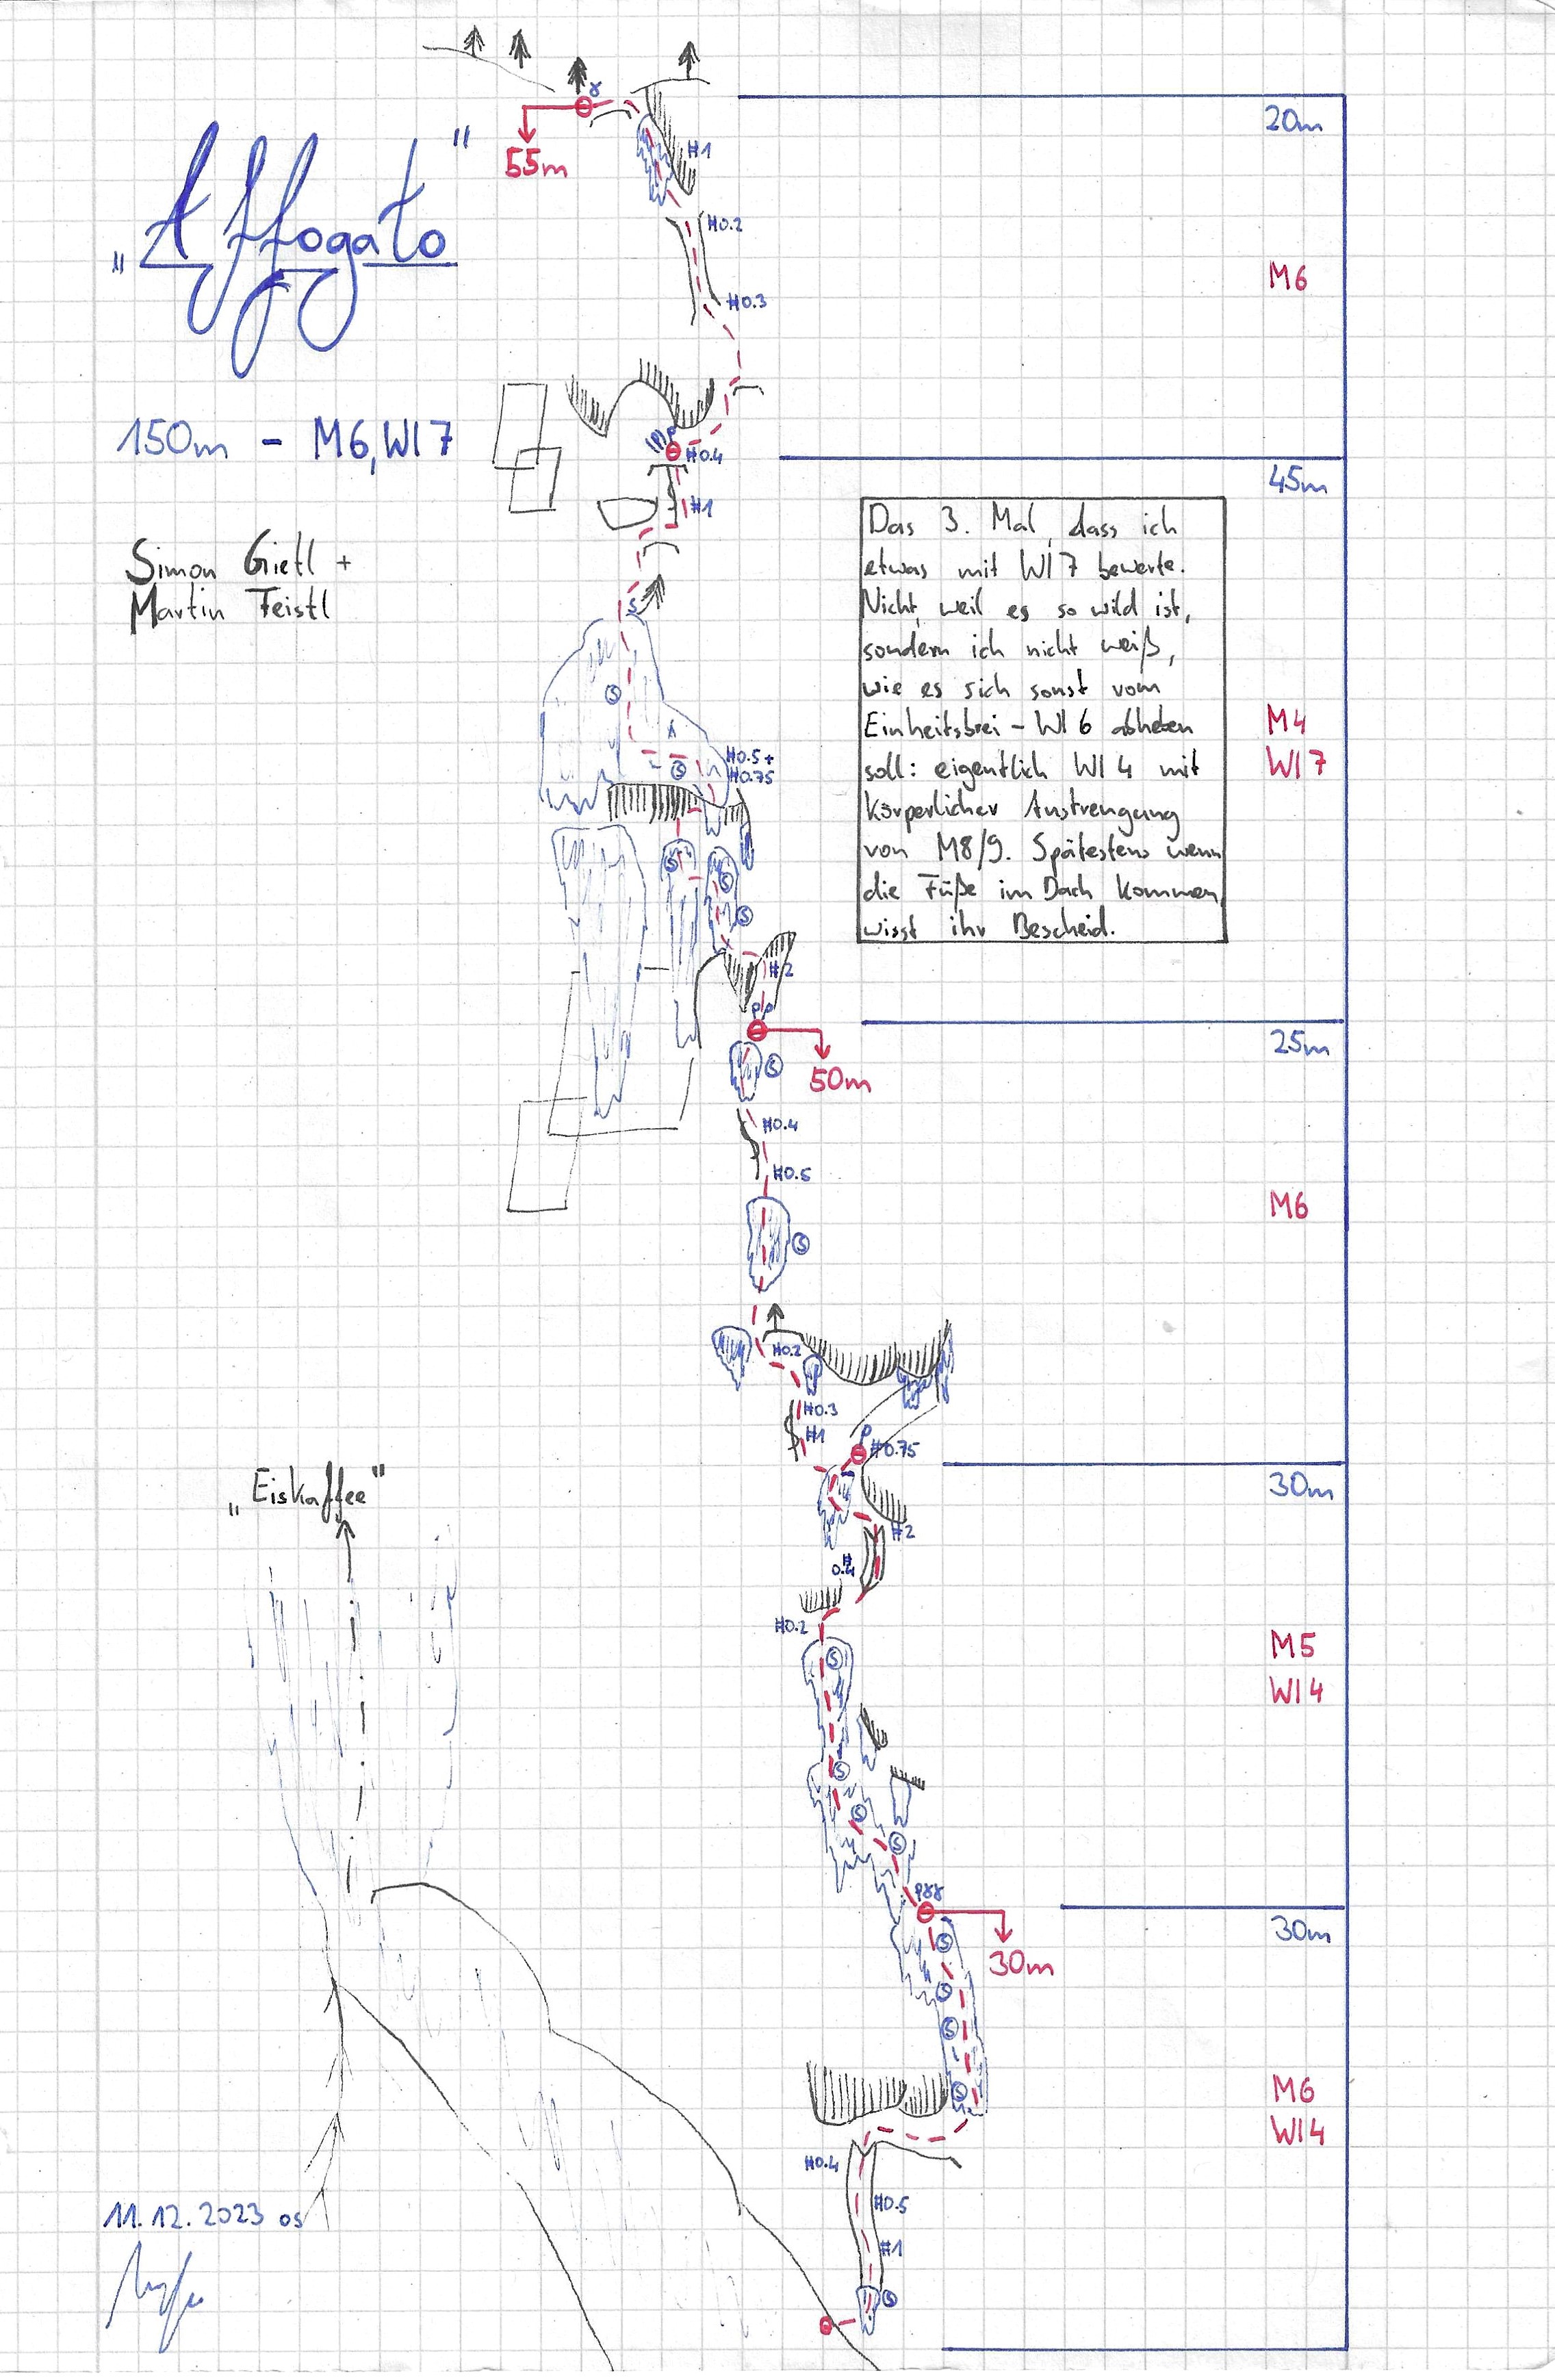 20m
55m
"Affogato"
#1
#0.2
#0.3
M6
150m - M6, WI7
#0.4
45m
#1
Simon Gietl +
Martin Feistl
Das 3. Mal, dass ich
etwas mit WI7 bewerte.
Nicht, weil es so wild ist,
sondern ich nicht weiß,
wie es sich sonst vom
Einheitsbrei - WI 6 abheben
soll: eigentlich WI 4 mit
körperlicher Anstrengung
von M8/9. Spätestens wenn
die Füße im Dach kommen,
wisst ihr Bescheid.
S
S
M4
WI7
#0.5 +
#0.75
S
S
S
S
#2
PP
25m
50m
S
#0.4
#0.5
M6
S
#0.2
#0.3
#1
P
#0.75
30m
„Eiskaffee"
#2
#
0.4
#0.2
S
M5
WI4
S
S
S
30m
S
30m
S
S
S
M6
WI4
#0.4
#0.5
#1
S
11.12.2023 os